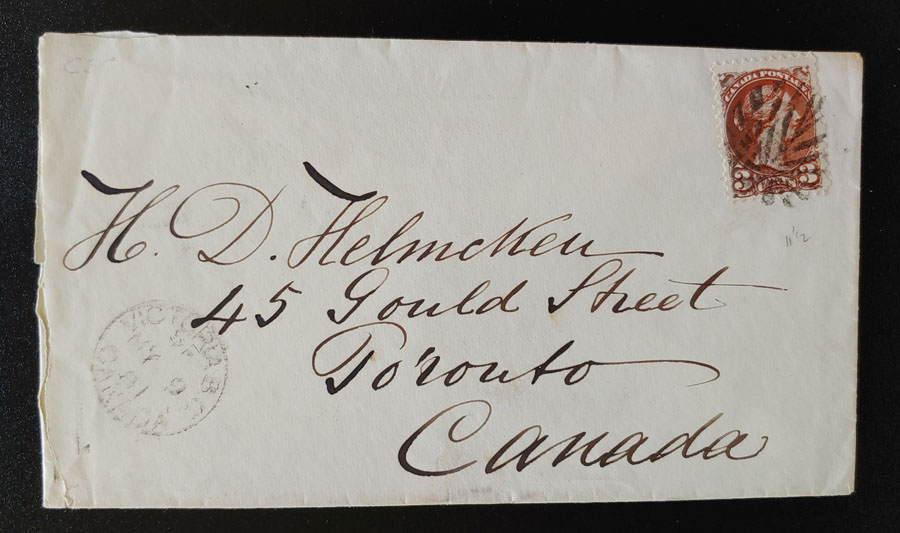 CANADA POSTAGE
3 3
11 1/2
H. D. Helmcken
45 Gould Street
Toronto
Canada
VICTORIA B.C.
MY 9
81
CANADA